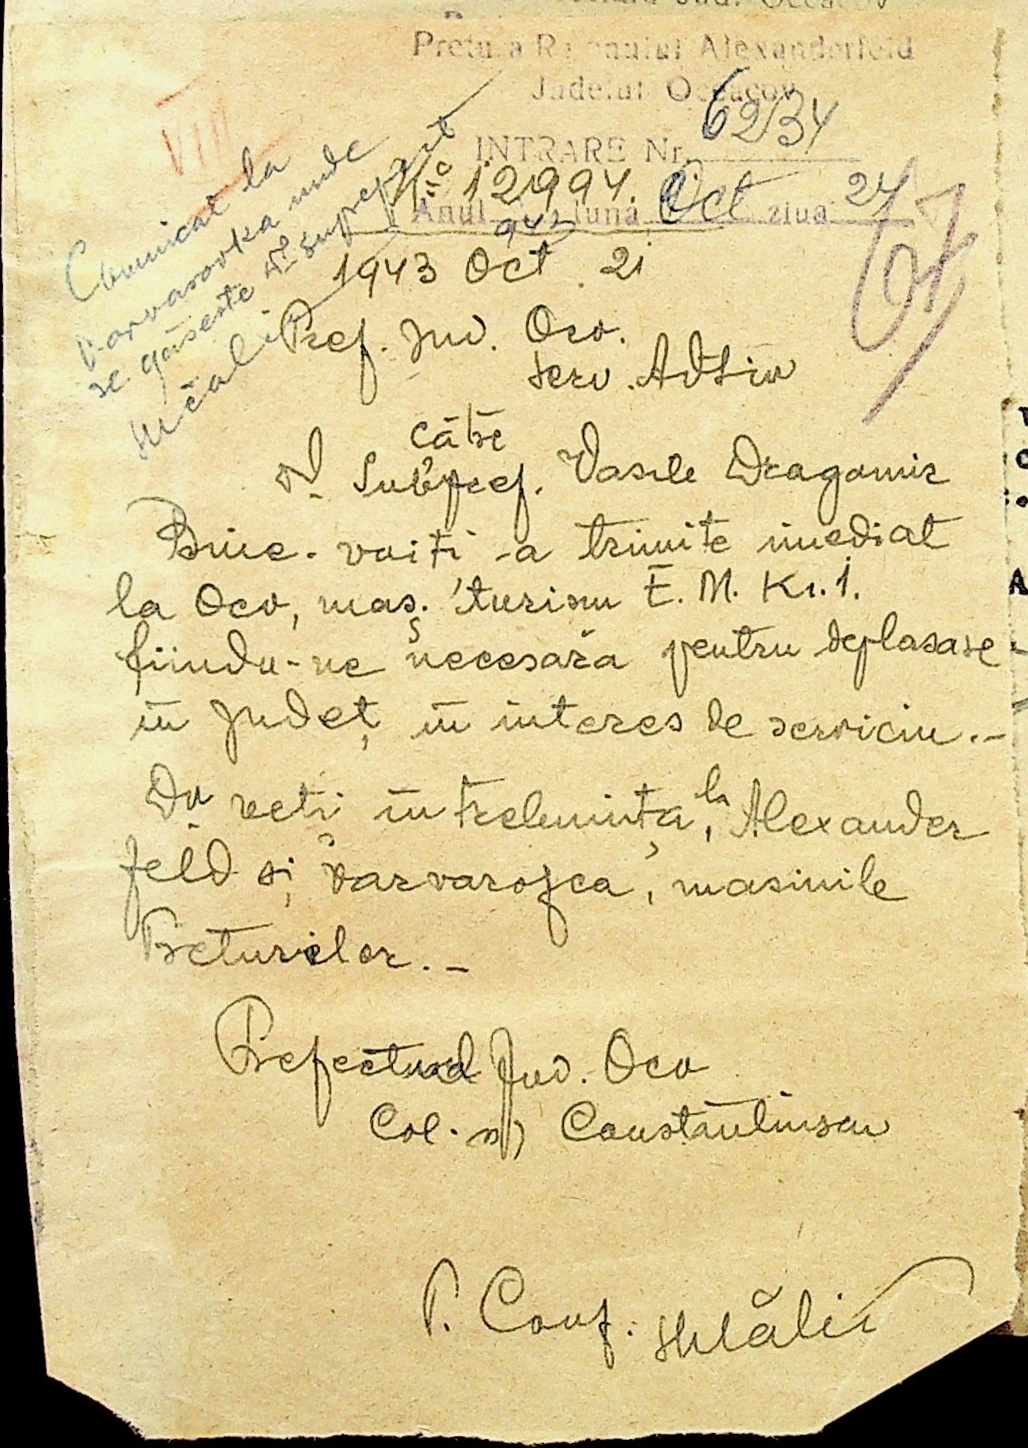 Pretura Raionului Alexanderfeld
Judetul Oceacov
INTRARE Nr. 6234
Anul 943 luna Oct ziua 24
VIII
Comunicat la
Varvarovka unde
se găsește Dl Subprefect
No 12994
1943 Oct 21
Pref. Jud. Oco.
Serv. Adtiv
către
Dl. Subpref. Vasile Dragomir
Bine-voiți -a trimite imediat
la Oco, maș. turism E. M. Kr. 1.
fiindu-ne necesară pentru deplasare
în Județ, în interes de serviciu.-
Dv veți întrebuința, la Alexander
feld și Varvarofca, masinile
Preturilor.-
Prefectul Jud. Oco
Col. ss) Constantinescu
P. Conf.